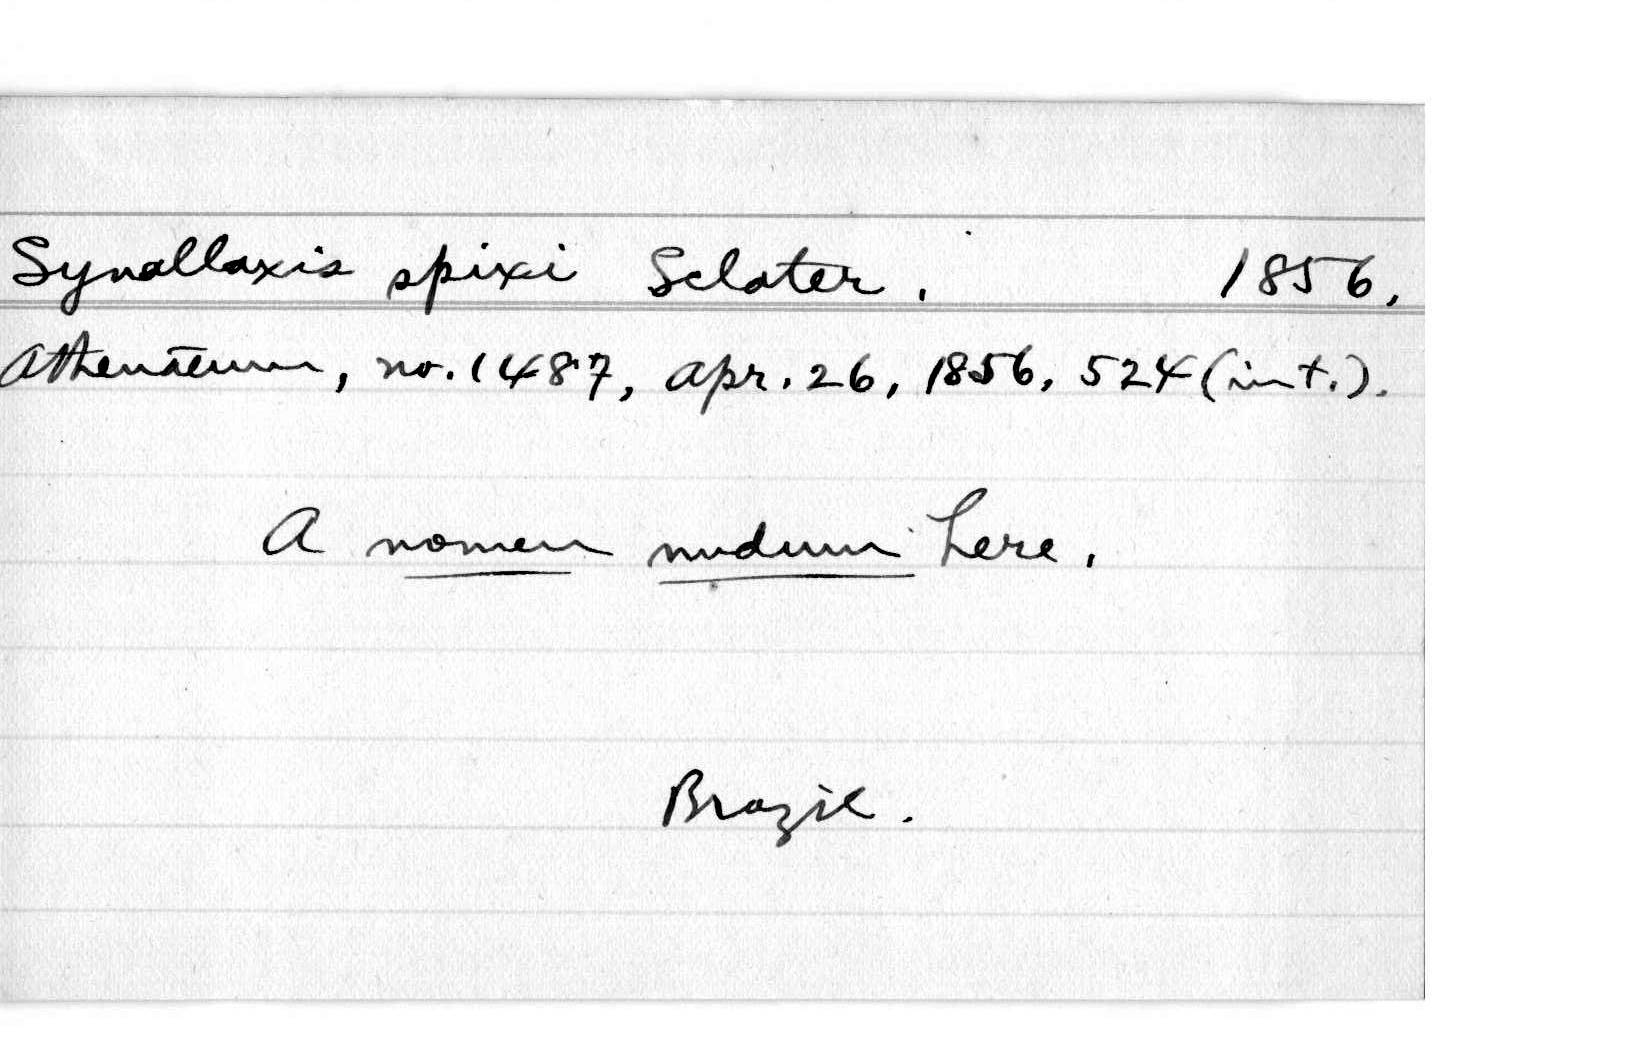 Synallaxis spixi Sclater. 1856.
Athenaeum, no. 1487, Apr. 26, 1856, 524 (int.).
A nomen nudum here.
Brazil.